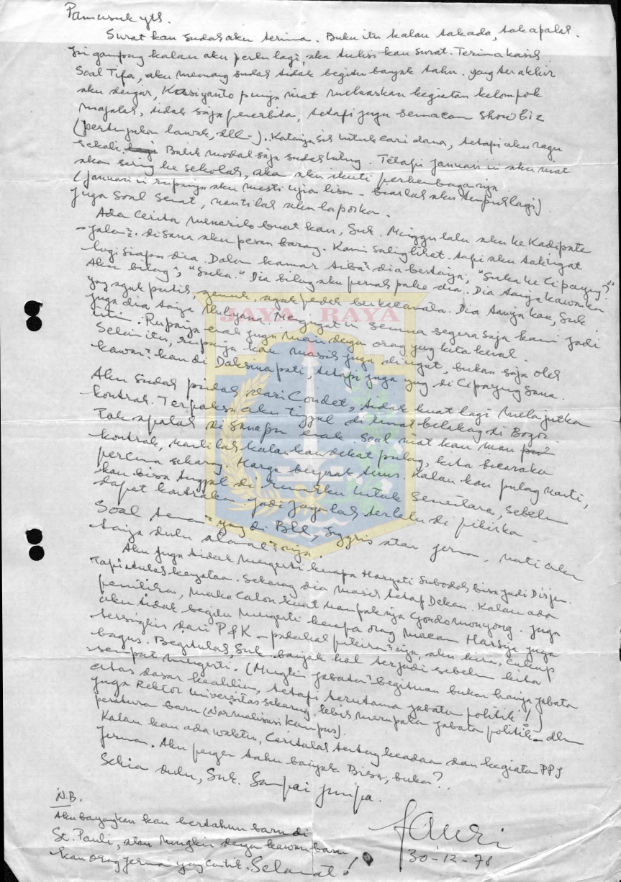 Pamusuk yts.
Surat kau sudah aku terima. Buku itu kalau tak ada, tak apalah.
gampang kalau aku perlu lagi, aku tulis kau surat. Terima kasih
Soal Tifa, aku memang sudah tidak begitu banyak tahu. yang terakhir
aku dengar, Kussiyanto punya niat meluaskan kegiatan kelompok
majalah, tidak saja penerbitan, tetapi juga semacam show biz
(pertunjukan lawak, dll.). Katanya sih untuk cari dana, tetapi aku ragu
sekali. Balik modal saja sudah untung. Tetapi Januari ini aku niat
akan sering ke sekolah, akan aku ikuti perkembangannya
(Januari ini rupanya aku mesti ujian lisan. lagi)
Juga soal Senat, nanti lah aku laporkan.
Ada cerita menarik buat kau, Suk. Minggu lalu aku ke Kadipolo
di sana aku pesan barang. Kami saling lihat, tapi aku tak ingat
lagi siapa dia. Dalam kamar tiba dia bertanya, "Suka ke Cipayung?"
Aku bilang, "Suka." Dia bilang aku pernah pake dia. Dia tanya kawanku
yang agak putih, gemuk, agak pendek berkacamata. Dia tanya kau, Suk
juga dia tanya Mulyasa. Mengingat semua segera saja kami jadi
Rupanya enak juga main dengan orang yang kita kenal.
Selain itu, rupanya kau masih juga diingat, bukan saja oleh
kawan² kau di Daksinapati, tetapi juga yang di Cipayung sana.
Aku sudah pindah dari Condet, tidak kuat lagi melanjutkan
kontrak. Terpaksa aku tinggal di rumah belakang di Bogor.
Tak apalah di sana pun enak. Soal niat kau mau
kontrak, nanti lah kalau kau dekat pulang, kita bicarakan
percuma sekarang. Harga bergerak terus. Kalau kau pulang nanti,
kau bisa tinggal di rumahku untuk sementara, sebelum
dapat kontrakan. Jadi jangan lah terlalu di pikirkan.
Soal teman yang di Bld, Inggris atau Jerman, nanti akan
Aku juga tidak mengerti kenapa Haryati Subadio bisa jadi Dirjen.
Tapi itulah kenyataan. Sekarang dia masih tetap Dekan. Kalau ada
pemilihan, maka calon kuat nampaknya Gondomonyong. Juga
aku tidak begitu mengerti kenapa orang macam Harsja juga
tersingkir dari P&K — padahal puterinya, aku kira, cukup
bagus. Begitulah, Suk. banyak hal terjadi sebelum kita
sempat mengerti. (Mungkin jabatan² begituan bukan hanya jabatan
atas dasar keahlian, tetapi terutama jabatan politik!)
juga Rektor Universitas sekarang lebih merupakan jabatan politik — dlm
peraturan baru (Normalisasi Kampus).
Kalau kau ada waktu, ceritalah tentang keadaan dan kegiatan PPI
Jerman. Aku pengen tahu banyak. Bisa, bukan?
Sekian dulu, Suk. Sampai jumpa.
N.B.
Aku bayangkan kau bertahun baru di
St. Pauli, atau mungkin dengan kawan baru
kau orang Jerman yang cantik. Selamat!
Fauzi
30-12-78
JAYA RAYA